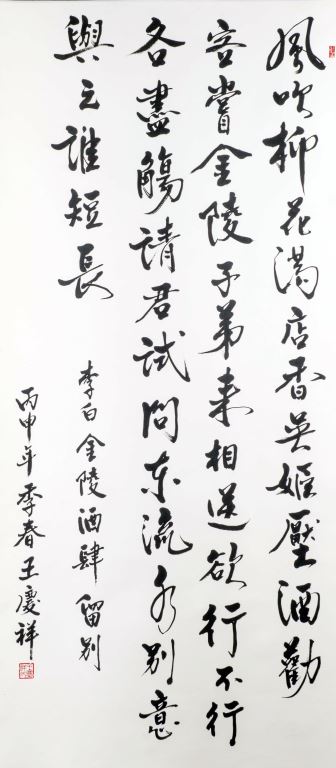 風吹柳花滿店香吳姬壓酒勸
客嘗金陵子弟來相送欲行不行
各盡觴請君試問東流水別意
與之誰短長
李白金陵酒肆留別
丙申年季春王慶祥